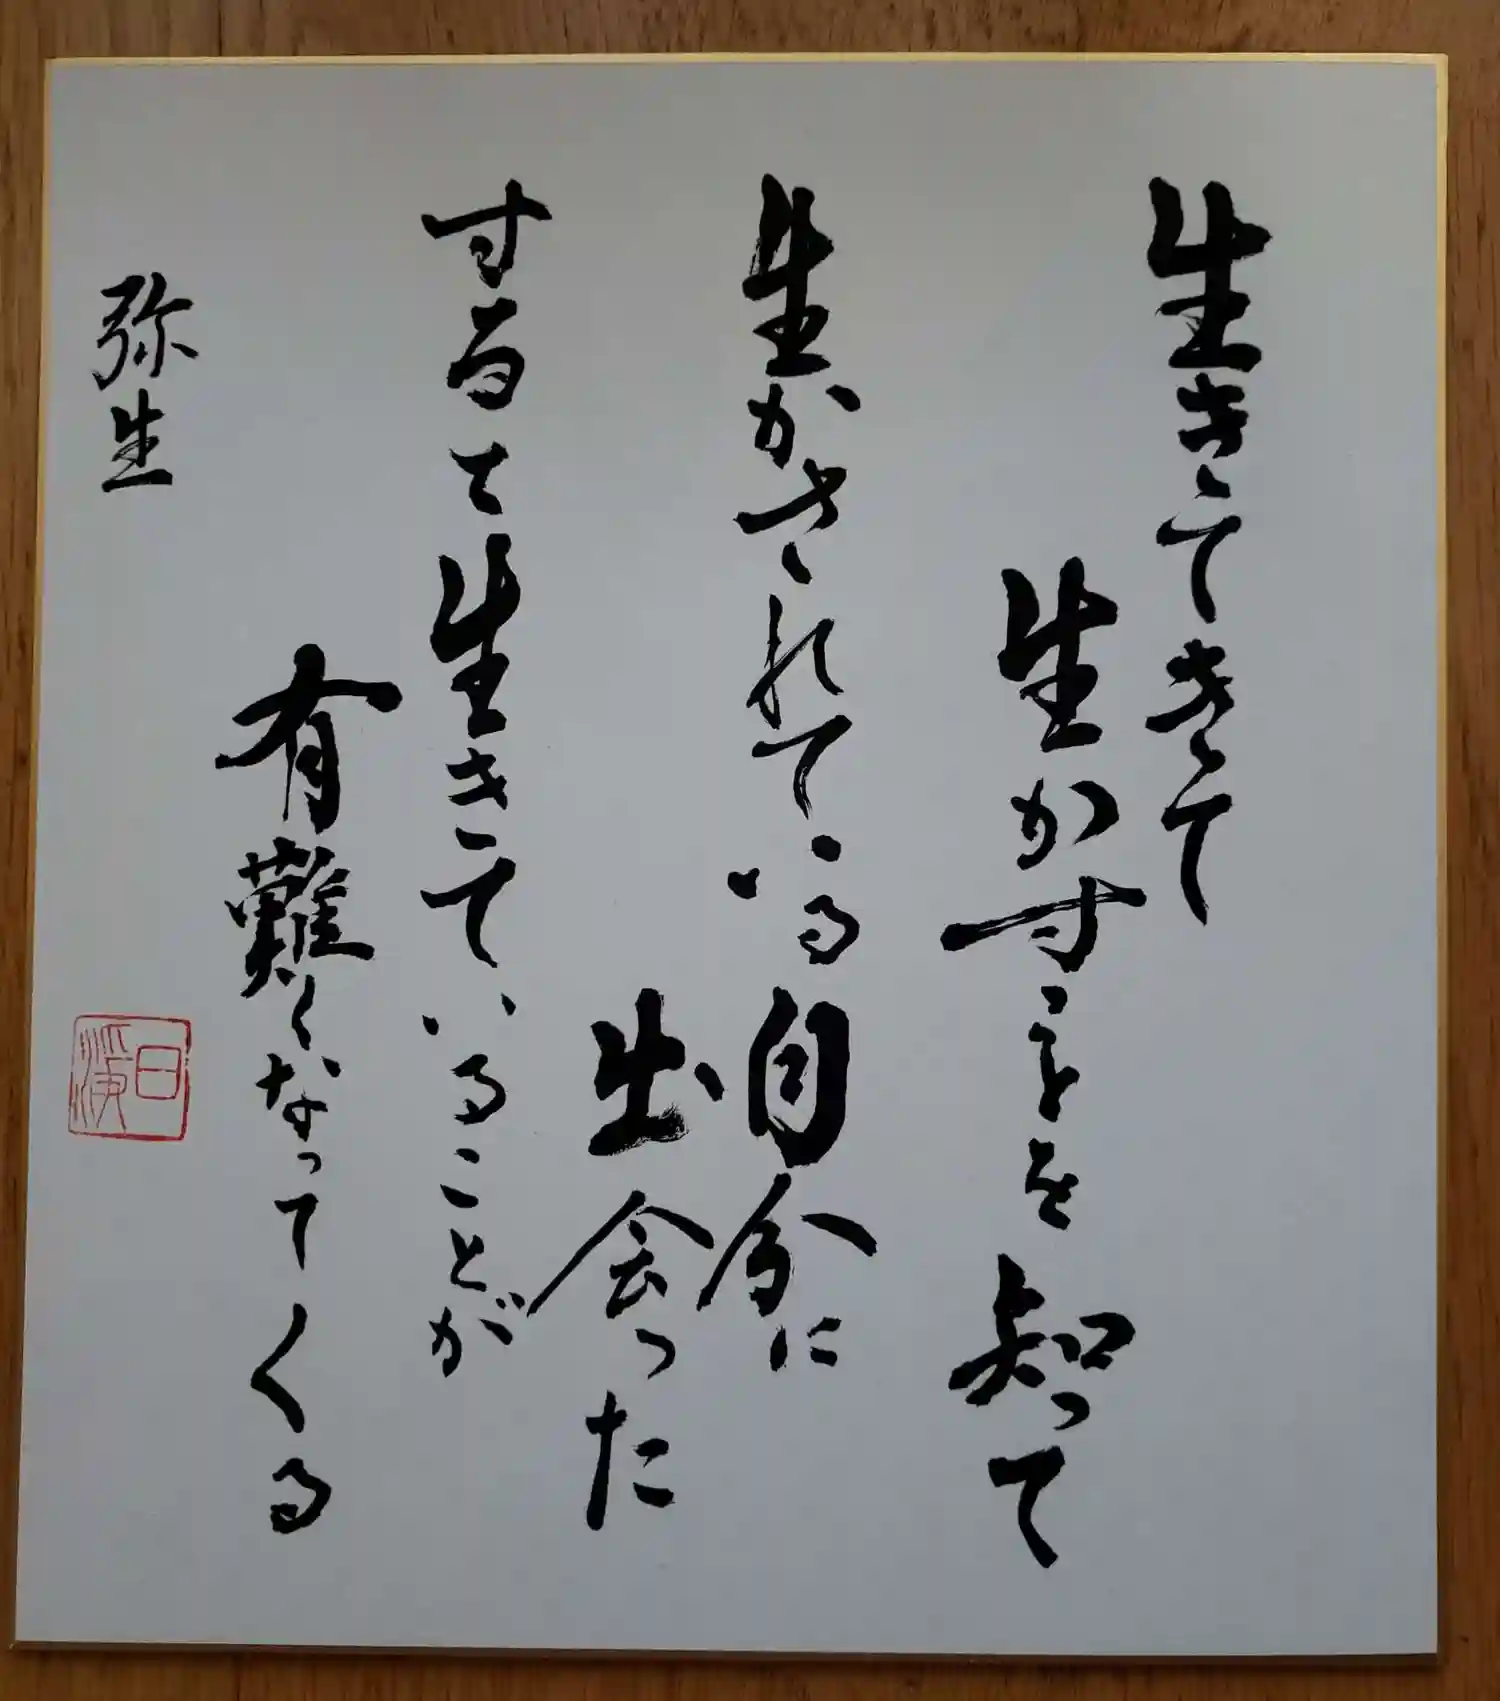 生きてきて
生かすことを知って
生かされている自分に
出会った
すると生きていることが
有難くなってくる
弥生
日海